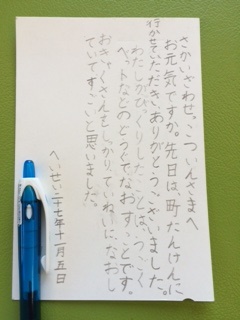 さかいざわせっこついんさまへ
お元気ですか。先日は、町たんけんに
行かせていただき、ありがとうございました。
わたしがびっくりしたことは、つごく
ベットなどのどうぐでなおすことです。
おきゃくさんをしっかりていねいになおし
ていてすごいと思いました。
へいせい二十七年十一月五日